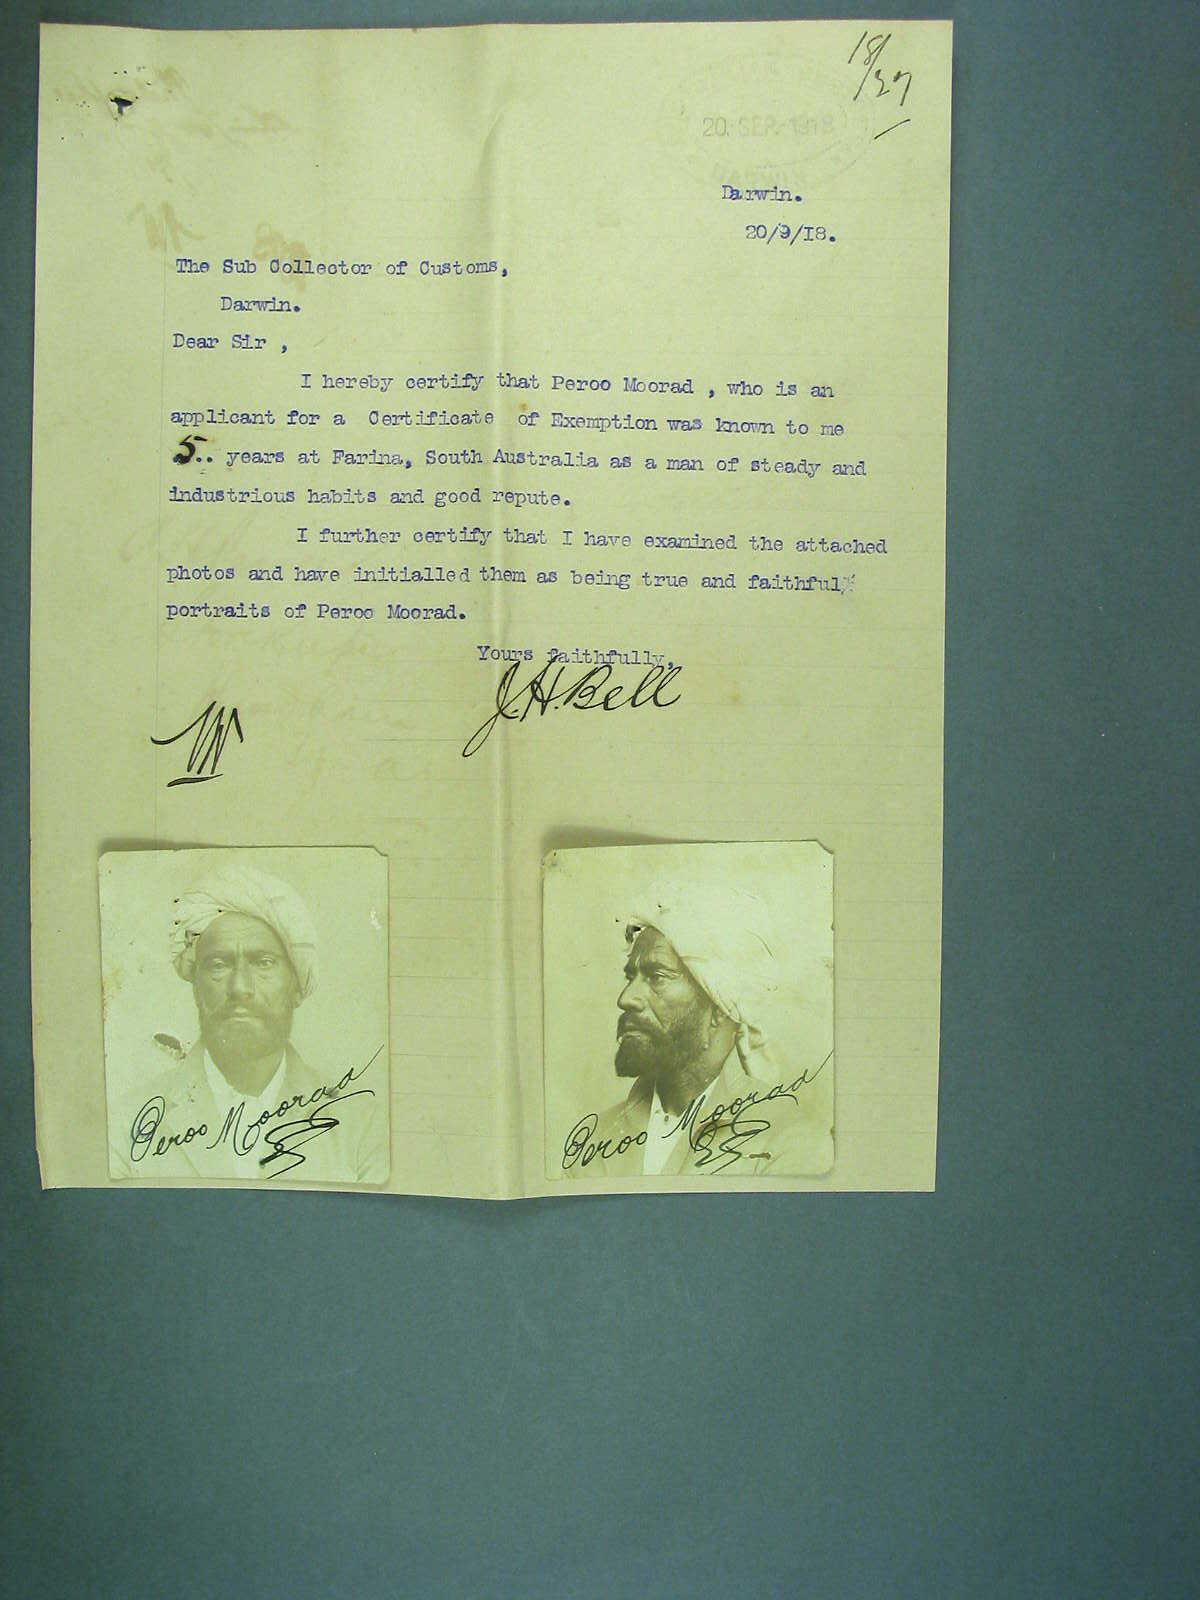 18/27
20. SEP. 1918
DARWIN
Darwin.
20/9/I8.
The Sub Collector of Customs,
Darwin.
Dear Sir ,
I hereby certify that Peroo Moorad , who is an
applicant for a Certificate of Exemption was known to me
5.. years at Farina, South Australia as a man of steady and
industrious habits and good repute.
I further certify that I have examined the attached
photos and have initialled them as being true and faithful
portraits of Peroo Moorad.
Yours faithfully,
J.H.Bell
Peroo Moorad
Peroo Moorad